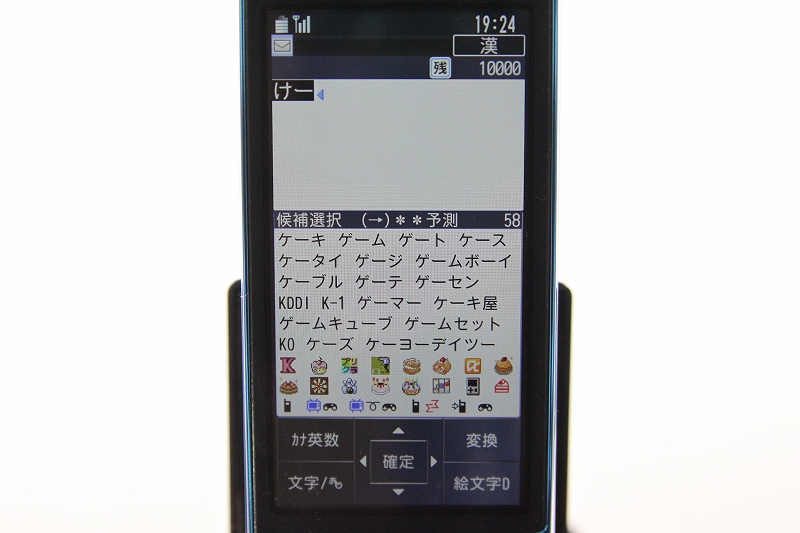 19:24
漢
残 10000
けー
候補選択 (→)**予測 58
ケーキ ゲーム ゲート ケース
ケータイ ゲージ ゲームボーイ
ケーブル ゲーテ ゲーセン
KDDI K-1 ゲーマー ケーキ屋
ゲームキューブ ゲームセット
KO ケーズ ケーヨーデイツー
K プリクラ α
カナ英数 変換
確定
文字/あ 絵文字D